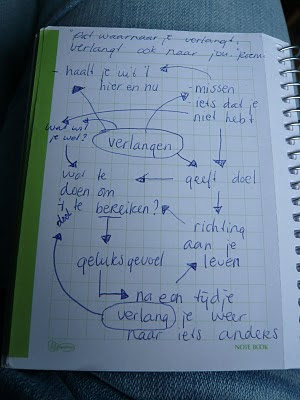 "Dat waarnaar je verlangt,
verlangt ook naar jou."
- haalt je uit 't
hier en nu
- missen
- iets dat je
niet hebt
wat wil
je wel?
verlangen
wat te
doen om
't te bereiken?
doel
geeft doel
richting
aan je
leven
geluksgevoel
na een tijdje
verlang je weer
naar iets anders
NOTE BOOK